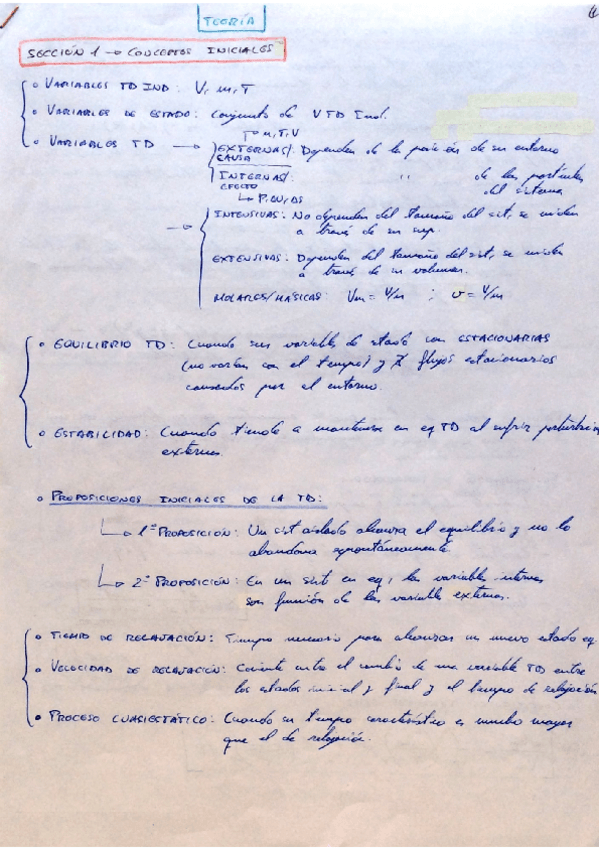 TEORÍA
SECCIÓN 1 → CONCEPTOS INICIALES
• VARIABLES TD IND: V, m, T
• VARIABLES DE ESTADO: Conjunto de V TD Ind.
m, T, V
• VARIABLES TD → EXTERNAS/: Dependen de la posición de su entorno
CAUSA
INTERNAS/: " de las partículas
EFECTO del sistema
↳ P, ΔU, ΔS
→ INTENSIVAS: No dependen del tamaño del sist, se miden
a través de su sup.
EXTENSIVAS: Dependen del tamaño del sist, se miden
a través de su volumen.
MOLARES/MÁSICAS: Vm = V/n ; v = V/m
• EQUILIBRIO TD: Cuando sus variables de estado son ESTACIONARIAS
(no varían con el tiempo) y ∄ flujos estacionarios
causados por el entorno.
• ESTABILIDAD: Cuando tiende a mantenerse en eq TD al sufrir
externas.
• PROPOSICIONES INICIALES DE LA TD:
↳ 1ª PROPOSICIÓN: Un sist aislado alcanza el equilibrio y no lo
abandona espontáneamente.
↳ 2ª PROPOSICIÓN: En un sist en eq, las variables internas
son función de las variables externas.
• TIEMPO DE RELAJACIÓN: Tiempo necesario para alcanzar un nuevo estado eq.
• VELOCIDAD DE RELAJACIÓN: Cociente entre el cambio de una variable TD entre
los estados inicial y final y el tiempo de relajación
• PROCESO CUASIESTÁTICO: Cuando su tiempo característico es mucho mayor
que el de relajación.